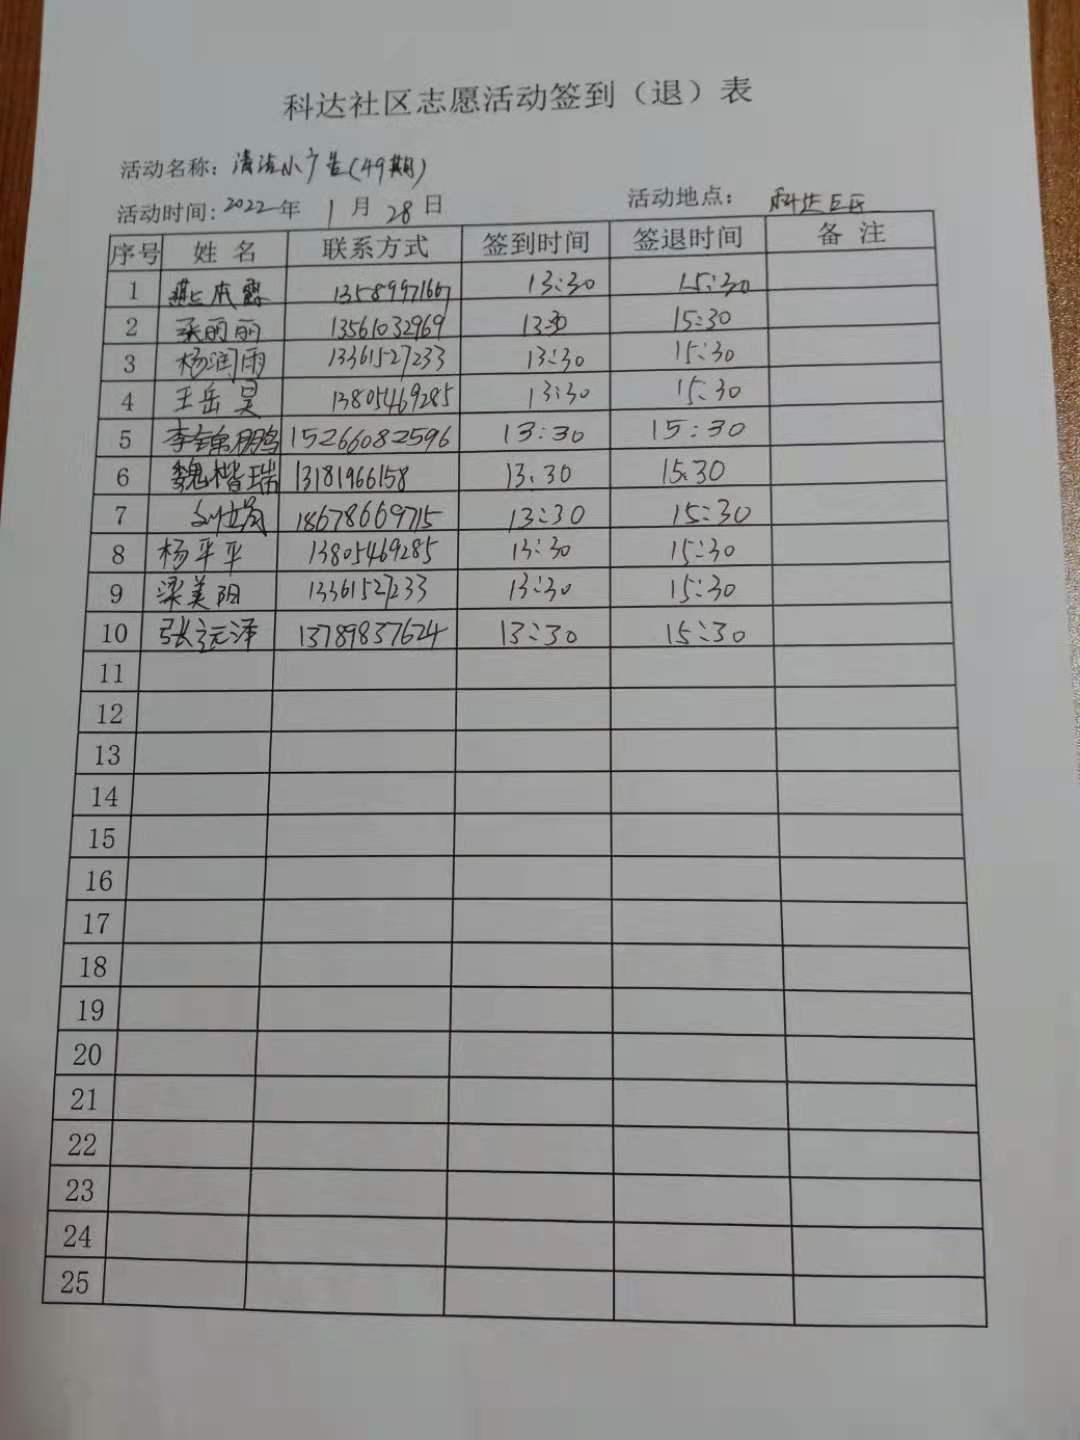 科达社区志愿活动签到（退）表
活动名称：清洁小广告(49期)
活动时间：2022年 1月 28日 活动地点： 科达社区
序号 姓名 联系方式 签到时间 签退时间 备注
1 13589971667 13:30 15:30
2 张丽丽 13561032969 13:30 15:30
3 杨润雨 13361527233 13:30 15:30
4 王岳昊 13805469285 13:30 15:30
5 李锦鹏 15266082596 13:30 15:30
6 魏楷瑞 13181966158 13:30 15:30
7 18678669715 13:30 15:30
8 杨平平 13805469285 13:30 15:30
9 梁美阳 13361527233 13:30 15:30
10 张沅泽 13789837624 13:30 15:30
11
12
13
14
15
16
17
18
19
20
21
22
23
24
25